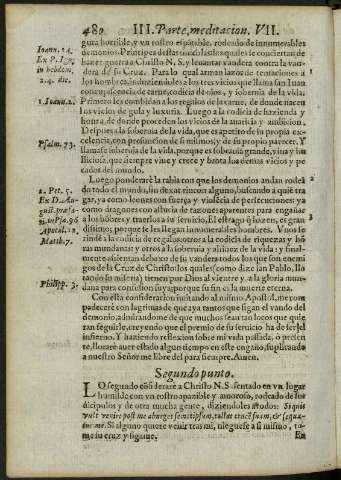 480 III. Parte, meditacion. VII.
gura horrible, y vn rostro espãtable, rodeado de innumerables
demonios, Principes destas tinieblas, los quales se conciertan de
hazer guerra a Christo N. S. y leuantar vandera contra la van-
dera de su Cruz. Para lo qual arman lazos de tentaciones a
los hombres, induziendoles a los tres vicios que llama san Iuan
concupiscencia de carne, codicia de ojos, y soberuia de la vida.
Primero les combidan a los regalos de la carne, de donde nacen
los vicios de gula y luxuria. Luego a la codicia de hazienda y
honra, de donde proceden los vicios de la auaricia y ambicion.
Despues a la soberuia de la vida, que es apetito de su propia ex-
celencia, con presuncion de si mismos, y de su propio parecer. Y
llamase soberuia de la vida, porque es soberuia grande, viua y bu
lliciosa, que siempre viue y crece y brota los demas vicios y pe
cados del mundo.
Luego ponderarè la rabia con que los demonios andan rodeã
do todo el mundo, sin dexar rincon alguno, buscando a quiẽ tra
gar, ya como leones con fuerça y violẽcia de persecuciones: ya
como dragones con astucia de razones aparentes para engañar
a los hõbres, y traerlos a su seruicio. El estrago q̃ hazen, es gran
dissimo; porque se les llegan innumerables hombres. Vnos se
rinde a la codicia de regalos: otros a la codicia de riquezas y hõ
ras mundanas; y otros a la soberuia y altiuez de la vida: y final-
mente assientan debaxo de su vandera todos los que son enemi
gos de la Cruz de Christo, los quales (como dize san Pablo, llo
rando su miseria) tienen por Dios al vientre y a la gloria mun
dana para confusion suya, porque su fin es la muerte eterna.
Con esta consideracion imitando al mismo Apostol, me com
padecerè con lagrimas de que aya tantos que sigan el vando del
demonio, admirandome de que muchos sean tan locos que quie
ran seguirle, creyendo que el premio de su seruicio ha de ser el
infierno. Y haziendo reflexion sobre mi vida passada, ò presen
te, llorarè auer estado algun tiempo en este engaño, suplicando
a nuestro Señor me libre del para siempre. Amen.
Segundo punto.
LO segundo cõsiderarè a Christo N. S. sentado en vn lugar
humilde con vn rostro apazible y amoroso, rodeado de sus
dicipulos y de otra mucha gente, diziendoles a todos: Si quis
vult venire post me abneget semetipsum, tollat crucẽ suam, & sequa-
tur me. Si alguno quiere venir tras mi, nieguese a si mismo, to-
me su cruz y sigame. En
Ioann. 14.
in hebdom.
2. 4. die.
1. Ioann. 2.
Psalm. 73.
1. Pet. 5.
Ex D. Au-
gust. præfa-
Apocal. 12.
Matth. 7.
Philipp. 3.